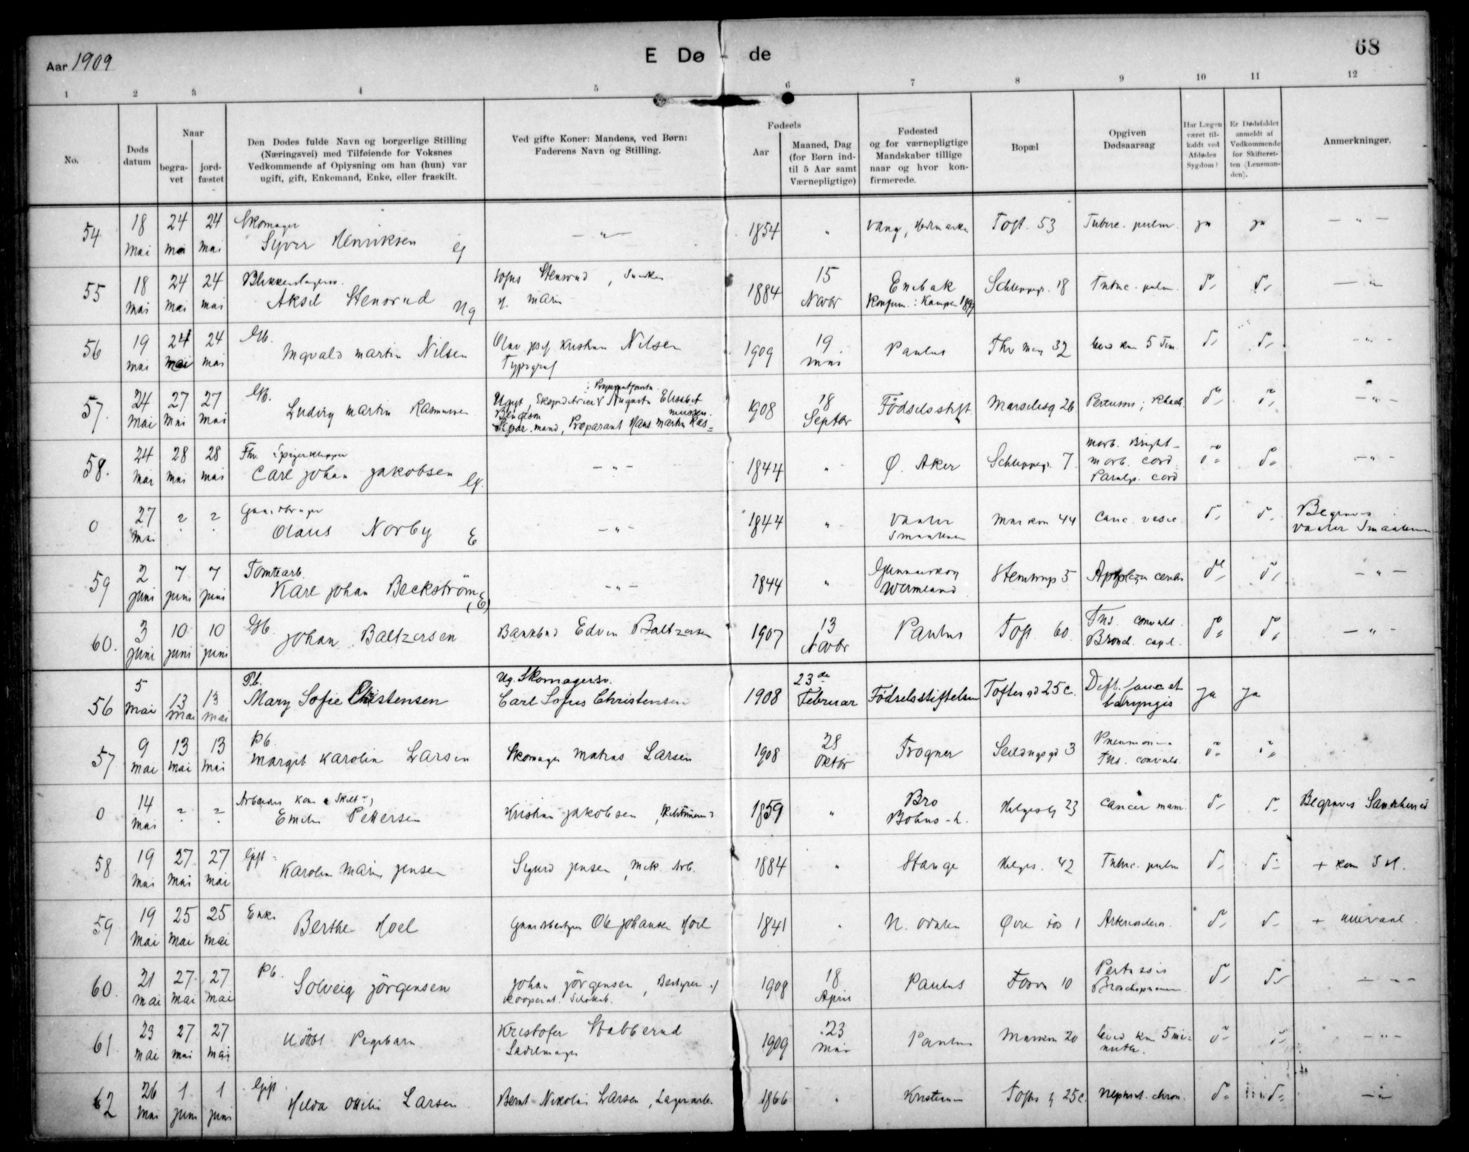 Aar 1909
E Døde
68
1 2 3 4 5 6 7 8 9 10 11 12
No.
Døds datum
Naar
begravet
jordfæstet
Den Dødes fulde Navn og borgerlige Stilling
(Næringsvei) med Tilføiende for Voksnes
Vedkommende af Oplysning om han (hun) var
ugift, gift, Enkemand, Enke, eller fraskilt.
Ved gifte Koner: Mandens, ved Børn:
Faderens Navn og Stilling.
Fødsels
Aar
Maaned, Dag
(for Børn indtil 5 Aar samt
Værnepligtige)
Fødested
og for værnepligtige
Mandskaber tillige
naar og hvor konfirmerede.
Bopæl
Opgiven
Dødsaarsag
Har Lægen
været tilkaldt ved
Afdødes
Sygdom?
Er Dødsfaldet
anmeldt af
Vedkommende
for Skifteretten (Lensmanden).
Anmerkninger.
54 18 mai 24 mai 24 mai Skomager Syver Henriksen — " — 1854 " Vang, Hedmarken Toft. 53 Tuberc. pulm. ja ja — " —
55 18 mai 24 mai 24 mai Aksel Stensrud Ug Stensrud 1884 15 Novbr Enebak Schleppegr. 18 Tuberc. pulm. d° d° — " —
56 19 mai 24 mai 24 mai Gb. Ingvald Martin Nilsen Olav Josef Kristian Nilsen Typograf 1909 19 mai Paulus Thv. Mey 32 Leved kun 5 Tim. d° d°
57. 24 mai 27 mai 27 mai Gb. Ludvig Martin Rasmussen Ugift Augusta Elisabet Bengtson Præparant Hans Martin Rasmussen. 1908 18 Septbr Fødselsstift Marselisg 26 Pertussis; d° d° — " —
58. 24 mai 28 mai 28 mai Carl Johan Jakobsen G. — " — 1844 " Ø. Aker Schleppegr. 7 Morb. Bright — morb. cord. Paralys. cord d° d° — " —
0 27 mai ? ? Gaardbruger Olaus Norby E — " — 1844 " Vaaler Smaalenene Markvn 44 Canc. vesic. d° d° Begraves Vaaler Smaalenene
59 2 juni 7 juni 7 juni Tomtearb. Karl Johan Beckström (E) — " — 1844 " Gunnarskog Wermland Stenstrups 5 Apoplexia cerebri d° d° — " —
60. 3 juni 10 juni 10 juni Gb. Johan Baltzersen Banebud Edvin Baltzersen 1907 13 Novbr Paulus Toft 60. Tus. convuls. Bronch. capil. d° d° — " —
56 5 mai 13 mai 13 mai Pb. Mary Sofie Christensen Ug. Skomagersv. Carl Sofus Christensen 1908 23de Februar Fødselsstiftelsen Toftes gd 25c. Dift. fauc et laryngis ja ja
57 9 mai 13 mai 13 mai Pb. Margit Karolin Larsen Skomager Mathias Larsen 1908 28 Oktbr Frogner Seildugsgd 3 Pneumoni Tus. convuls. d° d°
0 14 mai ? ? Arbeiders Kone Emilie Pettersen Kristian Jakobsen 1859 " Bro Bohus-L. Helgesg 23 Cancer mam. d° d° Begraves Sankthansd
58 19 mai 27 mai 27 mai Gift Karolin Marie Jensen Sigurd Jensen, Mek Arb. 1884 " Stange Helges. 42 Tuberc. pulm d° d° +
59 19 mai 25 mai 25 mai Enke Berthe Hoel Ole Johansen Hoel 1841 " N. Odalen Øvre Fos 1 d° d° + Ullevaal
60. 21 mai 27 mai 27 mai Pb. Solveig Jörgensen Johan Jörgensen, Bestyrer af Kooperat. 1908 18 April Paulus 10 Pertussis Bronchopneumoni d° d° — " —
61 23 mai 27 mai 27 mai Udöbt Pigebarn Kristofer Stabberud Sadelmager 1909 23 mai Paulus Markvn 20 Leved kun 5 minutter. d° d° — " —
62 26 mai 1 juni 1 juni Gift Hilda Otilie Larsen Bernt Nikolai Larsen, Lagerarb. 1866 " Kristiania Toftes g 25c. Nephrit. chron. d° d° — " —